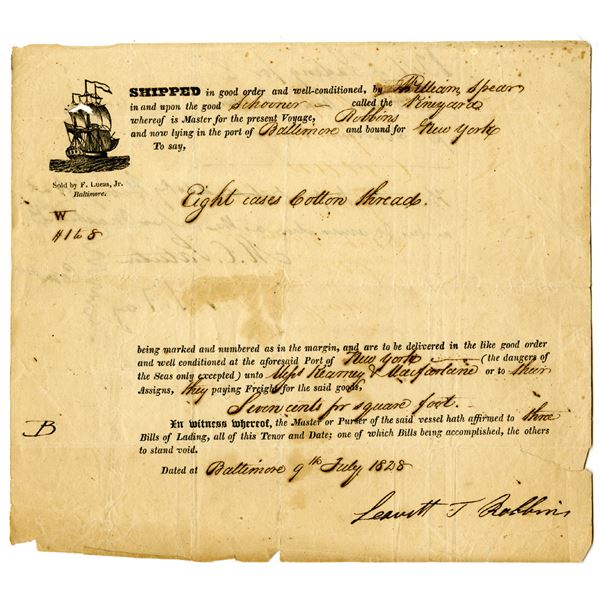 SHIPPED in good order and well-conditioned, by William Spear
in and upon the good Schooner called the Vineyard
whereof is Master for the present Voyage, Robbins
and now lying in the port of Baltimore and bound for New York
To say,
Sold by F. Lucas, Jr.
Baltimore.
W
#1 to 8
Eight cases Cotton thread.
being marked and numbered as in the margin, and are to be delivered in the like good order
and well conditioned at the aforesaid Port of New York (the dangers of
the Seas only excepted) unto Messrs Kearney & Macfarlane or to their
Assigns, they paying Freight for the said goods,
Seven cents pr square foot.
B
In witness whereof, the Master or Purser of the said vessel hath affirmed to three
Bills of Lading, all of this Tenor and Date; one of which Bills being accomplished, the others
to stand void.
Dated at Baltimore 9th July 1828
Leavitt T Robbins